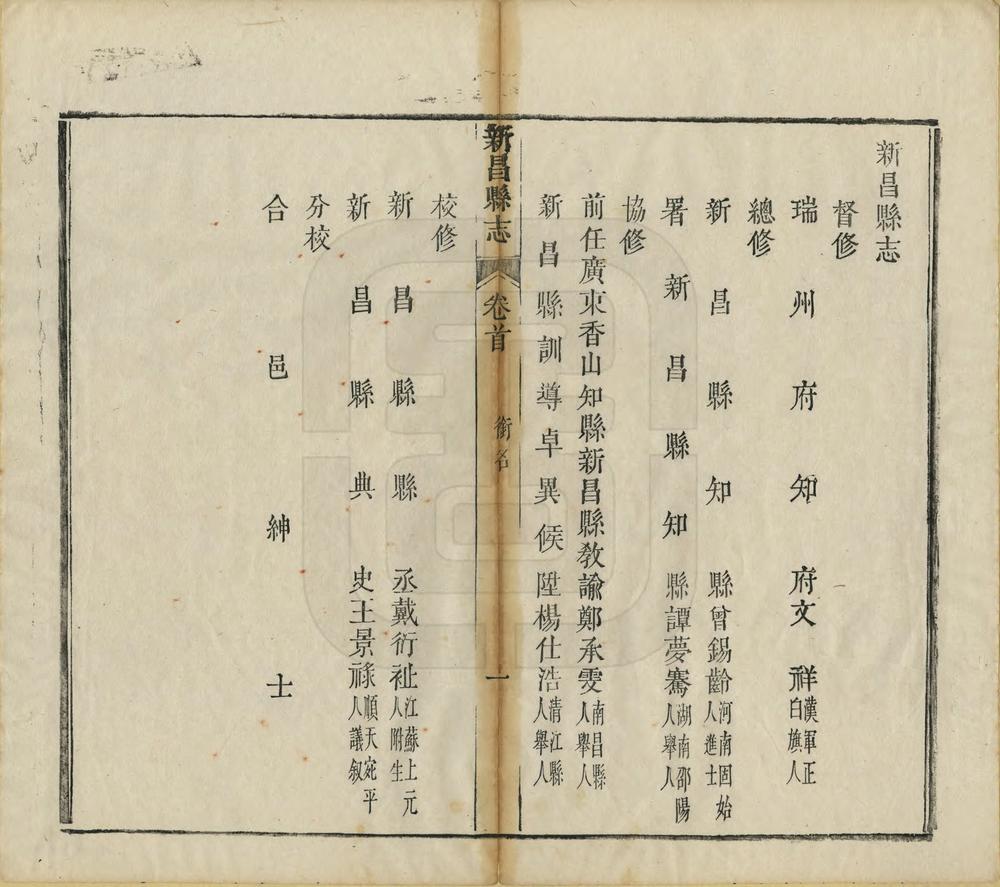 新昌縣志
督修
瑞州府知府文祥漢軍正白旗人
總修
新昌縣知縣曾錫齡河南固始人進士
署新昌縣知縣譚夢騫湖南邵陽人舉人
協修
前任廣東香山知縣新昌縣教諭鄭承雯南昌縣人舉人
新昌縣訓導卓異候陞楊仕浩清江縣人舉人
新昌縣志 卷首 銜名 一
校修
新昌縣縣丞戴衍祉江蘇上元人附生
新昌縣典史王景祿順天宛平人議叙
分校
合邑紳士